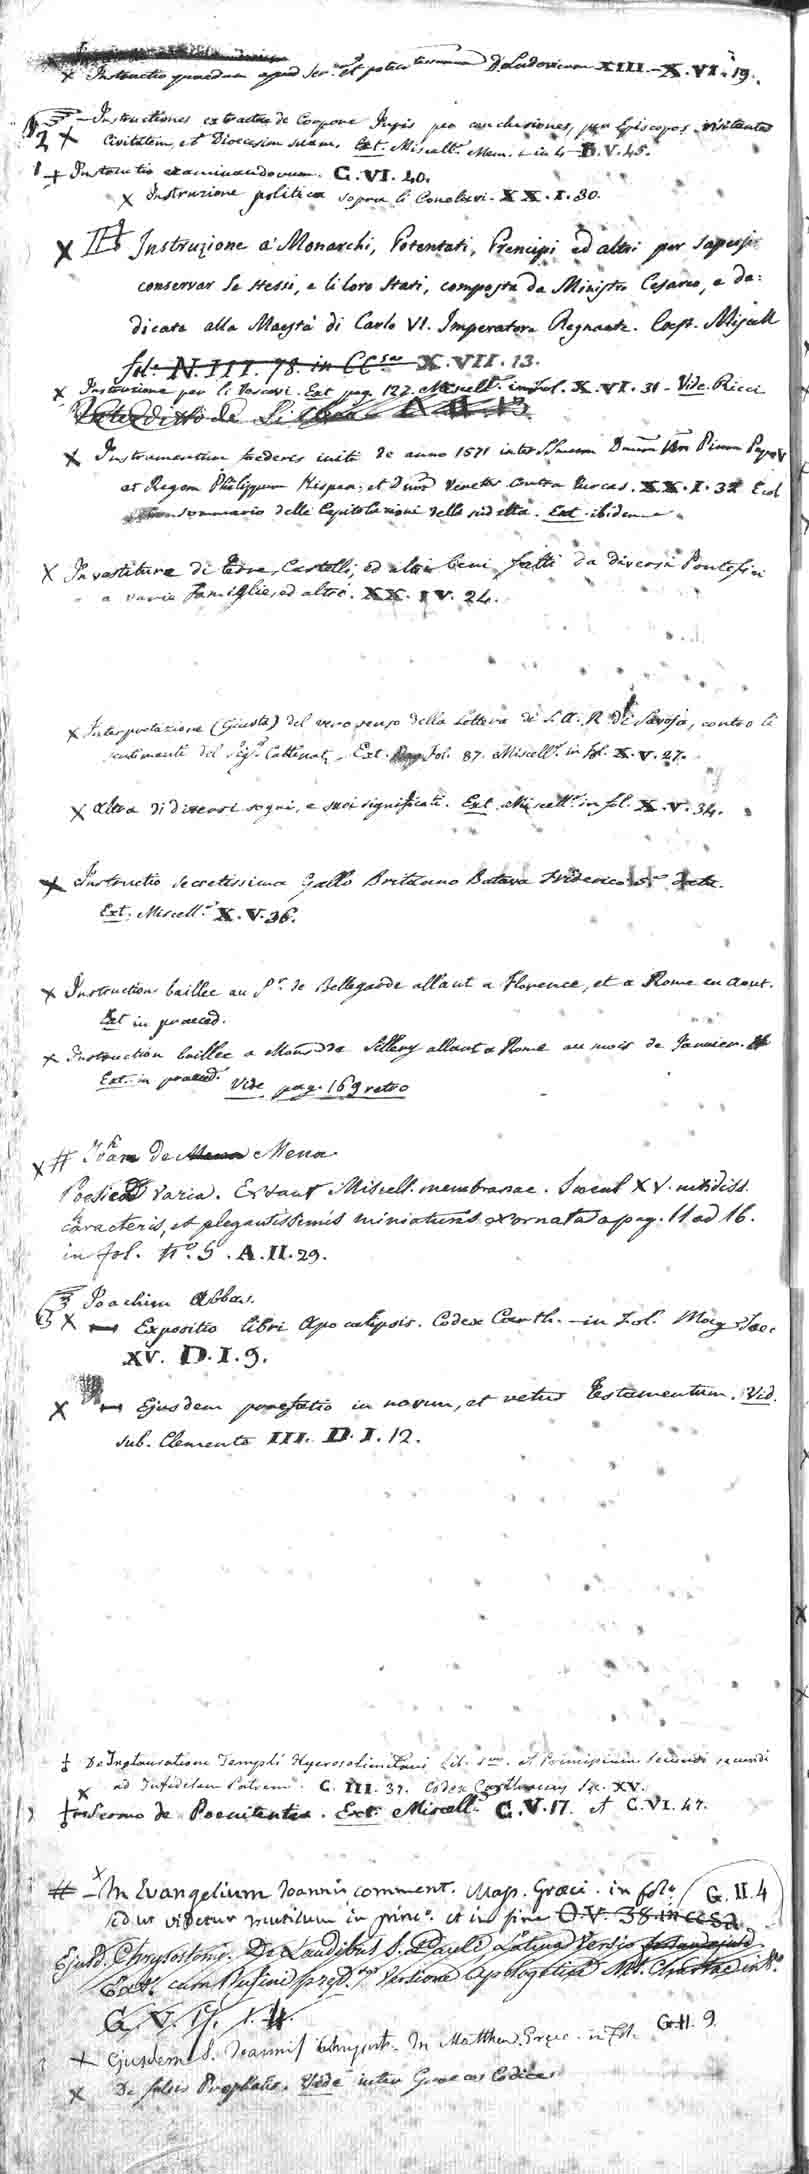 x Instructio quaedam apud Ser.m et poten tissimum D. Ludovicum XIII. – X. VI. 19.
– Instructiones extractae de Corpore Juris per conclusiones, pro Episcopos visitantes
2 x Civitatem, et Dioecesim suam. Ext. Miscell. Mem. in 4 D. V. 45.
1 + Instructio examinandorum. C. VI. 40.
x Instruzione politica sopra li Conclavi. XX. I. 30.
x Instruzione a' Monarchi, Potentati, Prencipi ed altri per sapersi
conservar se stessi, e li loro stati, composta da Ministro Cesareo, e de:
dicata alla Maestà di Carlo VI. Imperatore Regnante. Miscell
fol. N. III. 78. in X. VII. 13.
x Instruzione per li Vescovi. Ext pag. 127. Miscell. in fol. X. VI. 31 – Vide Ricci
Interdetto de
x Instrumentum foederis initi de anno 1571 inter Pium Papa V
et Regem Philippum Hispan: et Venetos contra Turcas. XX. I. 32 Ecol
sommario delle Capitolazioni della sudetta. Ext. ibidem
x Investiture di Terre, Castelli, ed altri beni fatti da diversi Pontefici
a varie Famiglie, ed altro. XX. IV. 24.
x Interpretazione (Giusta) del vero senso della Lettera di S. A. R. di Savoja, contro li
sentimenti del Sig.r Cattinat. Ext. fol. 87. Miscell. in fol. X. V. 27.
x Altra di diversi sogni, e suoi significati. Ext. Miscell. in fol. X. V. 34.
x Instructio secretissima Gallo Britanno Batava Friderico 5.o data.
Ext. Miscell. X. V. 36.
x Instruction baillee au S.r de Bellegarde allant a Florence, et a Rome en Aout.
Ext in praeced.
x Instruction baillee a Mons. de Sillery allant a Rome au mois de Janvier.
Ext. in praeced. Vide pag. 169 retro
x # Joan de Mena Mena
Poesie Varia. Extant Miscell. membranac. Saecul XV. nitidiss.
caracteris, et elegantissimis miniaturis exornata a pag. 11 ad 16.
in fol. N.o 5. A. II. 29.
Joachim Abbas.
3 x – Expositio libri Apocalipsis. Codex Carth. – in Fol. Mag Saec.
XV. D. I. 9.
x – Ejusdem praefatio in novum, et vetus Testamentum. Vid.
sub. Clemente III. D. I. 12.
‡ De Instauratione Templi Hyerosolimitani Lib. et Principium secundi
x ad Infidelem Patrem. C. III. 37. Codex Carthaceus Sec. XV.
‡ Sermo de Poenitentia. Ext. Miscell. C. V. 17. et C. VI. 47.
# – x In Evangelium Joannis comment. Mss. Graeci. in fol. G. II. 4
sed ut videtur mutilum in princ. et in fine O. V. 38 in
Ejusd. Chrysostomi. De Laudibus S. Pauli, Latina Versio
Ext. cum Rufini Versione Apologetica
G. V. 17.
+ Ejusdem S. Joannis Chrysost. In Matthaeu Graec. in fol. G. II. 9.
x De falsis Prophetis. Vide inter Graecos Codices